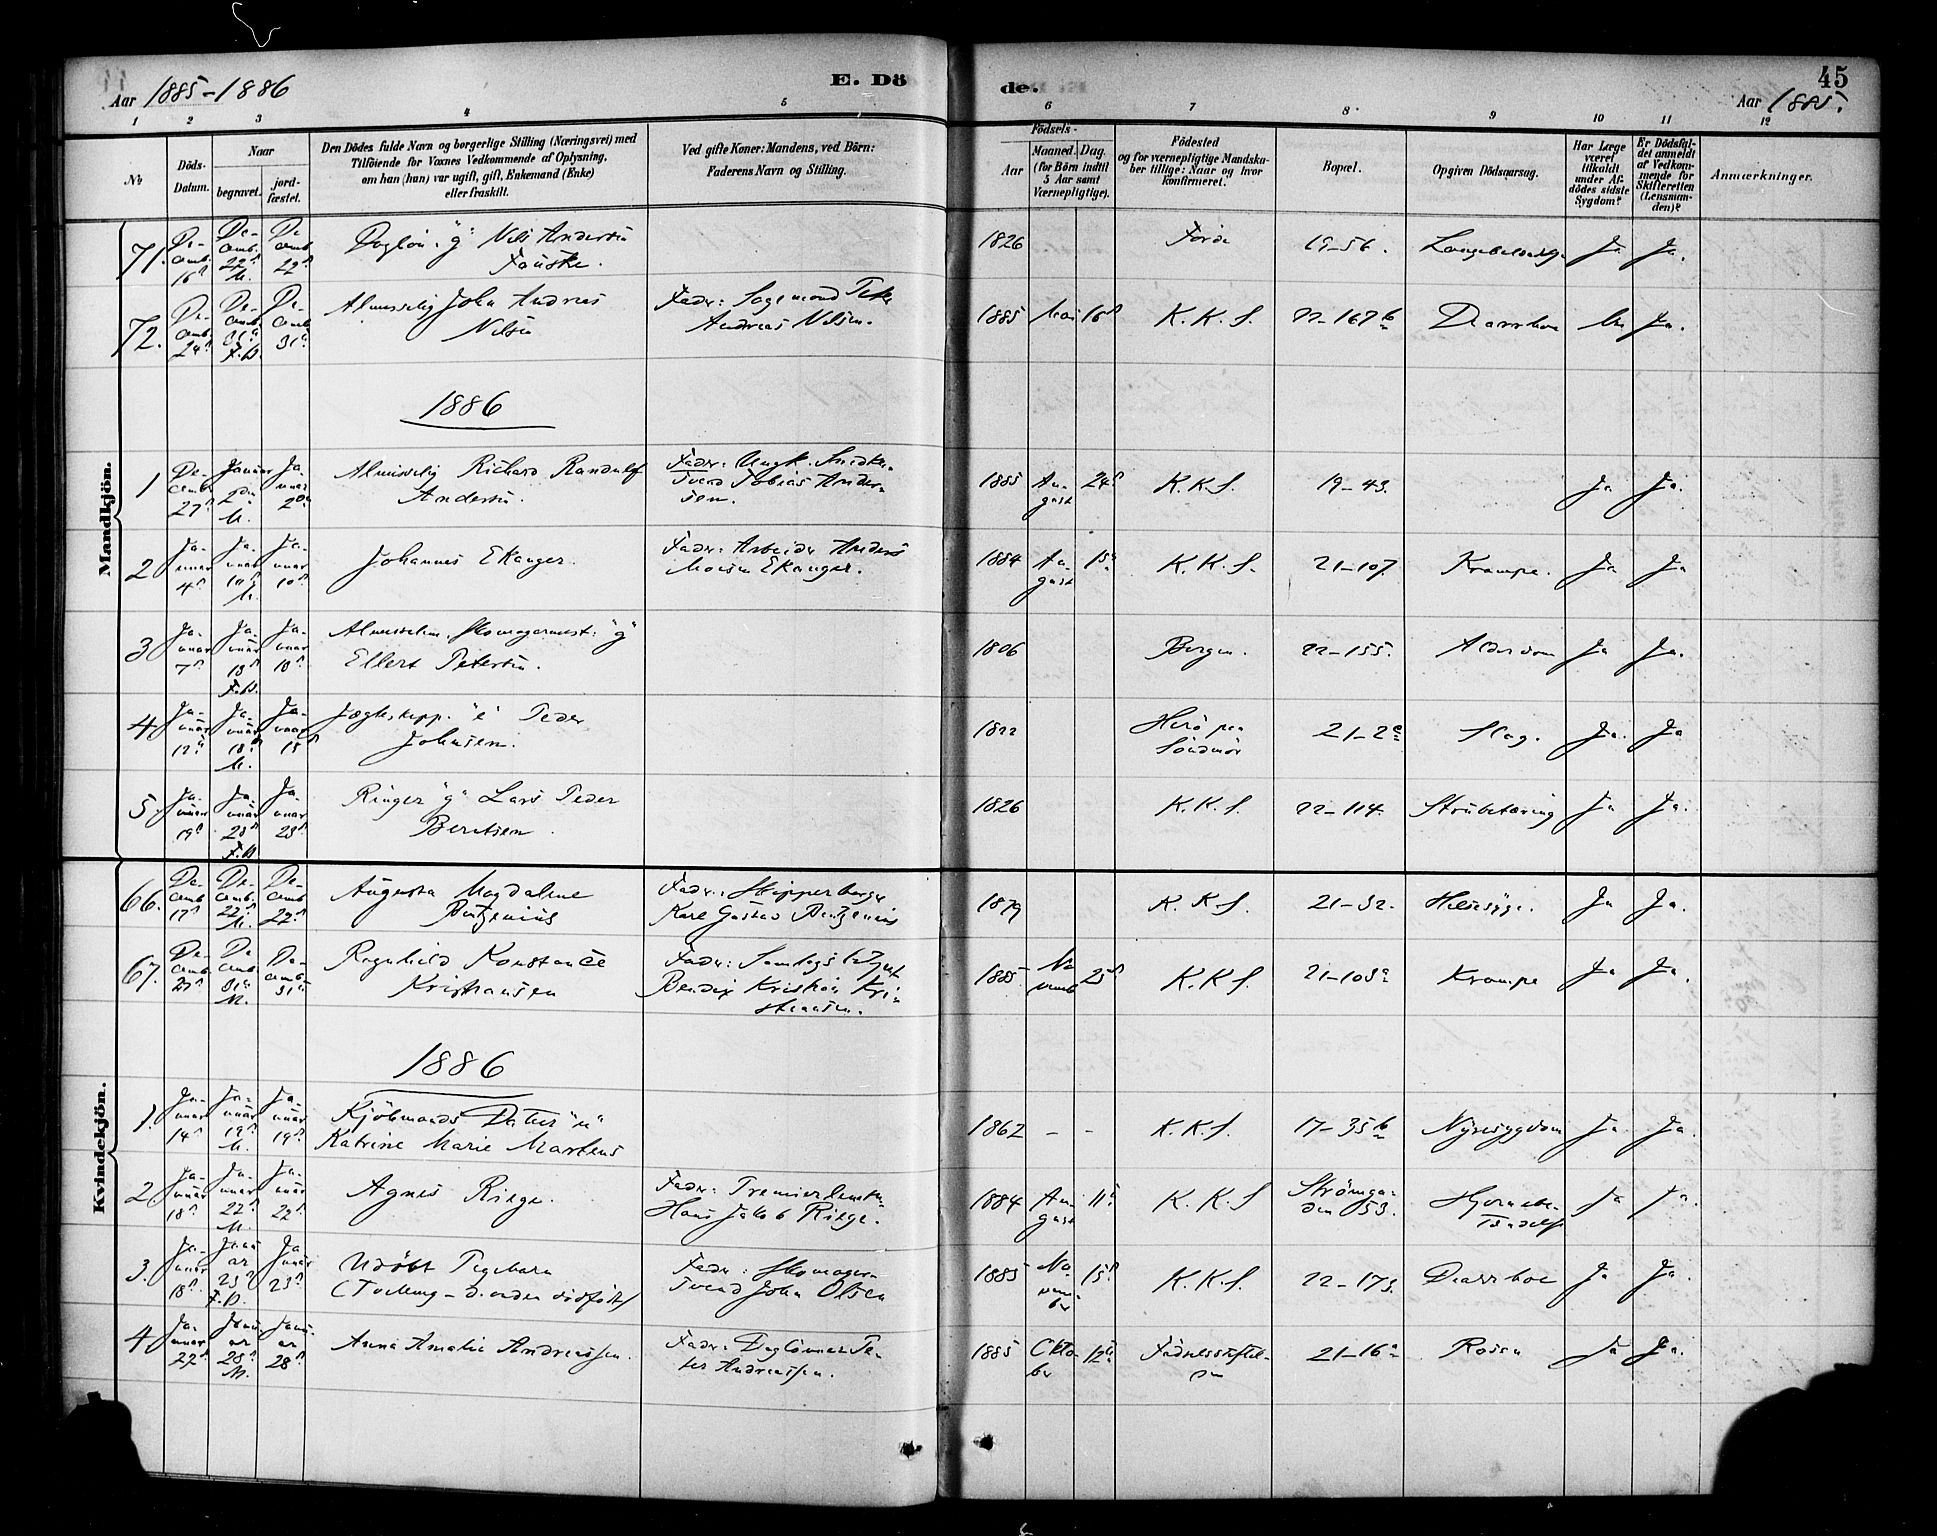 Aar 1885-1886
E. Dö
de.
45
Aar 1885.
1 2 3 4 5 6 7 8 9 10 11 12
№
Döds-Datum.
Naar
begravet.
jord-fæstet.
Den Dödes fulde Navn og borgerlige Stilling (Næringsvei) med
Tilföiende for Voxnes Vedkommende af Oplysning,
om han (hun) var ugift, gift, Enkemand (Enke)
eller fraskilt.
Ved gifte Koner: Mandens, ved Börn:
Faderens Navn og Stilling.
Födsels-
Aar
Maaned. Dag.
(for Börn indtil
5 Aar samt
Værnepligtige).
Födested
og for værnepligtige Mandska-
ber tillige: Naar og hvor
konfirmeret.
Bopæl.
Opgiven Dödsaarsag.
Har Læge
været
tilkaldt
under Af-
dödes sidste
Sygdom?
Er Dödsfal-
det anmeldt
af Vedkom-
mende for
Skifteretten
(Lensman-
den)?
Anmærkninger.
Mandkjön.
71. De-cemb. 16 De-cemb. 22 M. De-cemb. 22 Daglön. "g" Nils Andersen
Fauske.
1826 Förde 19-56. Ja Ja.
72. De-cemb. 24 De-cemb. 31 F.P. De-cemb. 31 Almisselig John Andreas
Nilsen
Fader:
Andreas Nilsen.
1885 Mai 16 K. K. S. 22-167b Diarrhoe Ja.
1886
1 De-cemb. 27 Januar 2 M. Ja-nuar 2 Almisselig Richard Randulf
Andersen.
Fader: Ungk. Snedker-
svend Tobias Ander-
sen.
1885 Au-gust 24 K. K. S. 19-43. Ja Ja.
2 Ja-nuar 4 Ja-nuar 10 M. Ja-nuar 10 Johannes Ekanger.
Fader: Arbeider Anders
Monsen Ekanger.
1884 Au-gust 15 K. K. S. 21-107. Krampe. Ja Ja
3 Ja-nuar 7 Ja-nuar 18 F.P. Ja-nuar 18 Almisselem. Skomagermest: "g"
Ellert Petersen.
1806 Bergen. 22-155. Alderdom Ja Ja.
4 Ja-nuar 12 Ja-nuar 18 M. Ja-nuar 18 Jægteskipp. "e" Peder
Johnsen.
1822 Herö paa
Söndmör
21-2a Slag. Ja. Ja
5. Ja-nuar 19 Ja-nuar 23 F.P. Ja-nuar 23 Ringer "g" Lars Peder
Berntsen.
1826 K. K. S. 22-114. Strubetæring Ja Ja.
Kvindekjön.
66. De-cemb. 17 De-cemb. 22 M. De-cemb. 22 Augusta Magdalene
Bentzenius
Fader: Skipperborger
Karl Gustav Bentzenius
1879 K. K. S. 21-32. Halssyge. Ja Ja.
67. De-cemb. 27 De-cemb. 31 M. De-cemb. 31 Ragnhild Konstance
Kristiansen
Fader: Samlagsbetjent
Bendix Kristian Kri-
stiansen.
1885. No-vemb 25 K. K. S. 21-103a Krampe Ja Ja.
1886
1. Ja-nuar 14 Ja-nuar 19 M. Ja-nuar 19 Kjöbmands Datter "u"
Katrine Marie Martens
1862 - - K. K. S. 17-35b Nyresygdom Ja Ja.
2 Ja-nuar 18 Ja-nuar 22 M. Ja-nuar 22 Agnes Rieger.
Fader: Premierleutn.
Hans Jakob Rieger.
1884 Au-gust 11 K. K. S Strömga-
den 53.
Ja Ja.
3. Ja-nuar 18 Janu-ar 23 F.P. Ja-nuar 23 Udöbt Pigebarn
(Tvilling - d. anden dödfödt)
Fader: Skomager-
svend John Olsen
1885 No-vem-ber 15 K. K. S. 22-173. Diarrhoe Ja Ja.
4 Ja-nuar 22 Janu-ar 28 M. Janu-ar 28 Anna Amalie Andreassen.
Fader: Daglönner Pe-
ter Andreassen.
1885 Okto-ber 12 Födselsstiftel-
sen
21-16a Rosen Ja Ja.